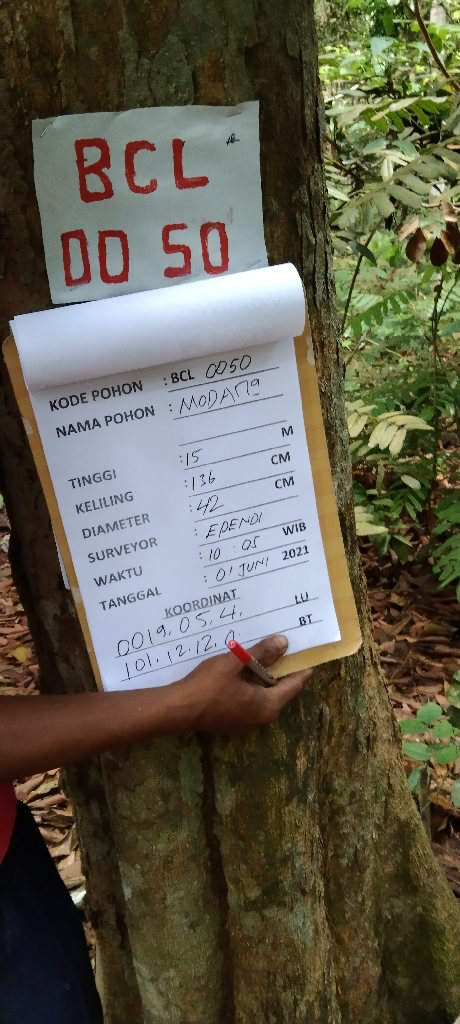 BCL
00 50
KODE POHON : BCL 0050
NAMA POHON : MODANG
TINGGI : 15 M
KELILING : 136 CM
DIAMETER : 42 CM
SURVEYOR : EPENDI
WAKTU : 10 : 05 WIB
TANGGAL : 01 JUNI 2021
KOORDINAT
0019.05.4. LU
101.12.12.0 BT